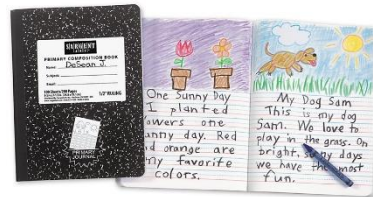 SARGENT
PRIMARY COMPOSITION BOOK
Name DeSean J.
Subject
1/2" RULING
PRIMARY
JOURNAL
One Sunny Day
I planted
owers one
unny day. Red
nd orange are
my favorite
colors.
My Dog Sam
This is my dog
Sam. We love to
play in the grass. On
bright, ny days
we have the most
fun.